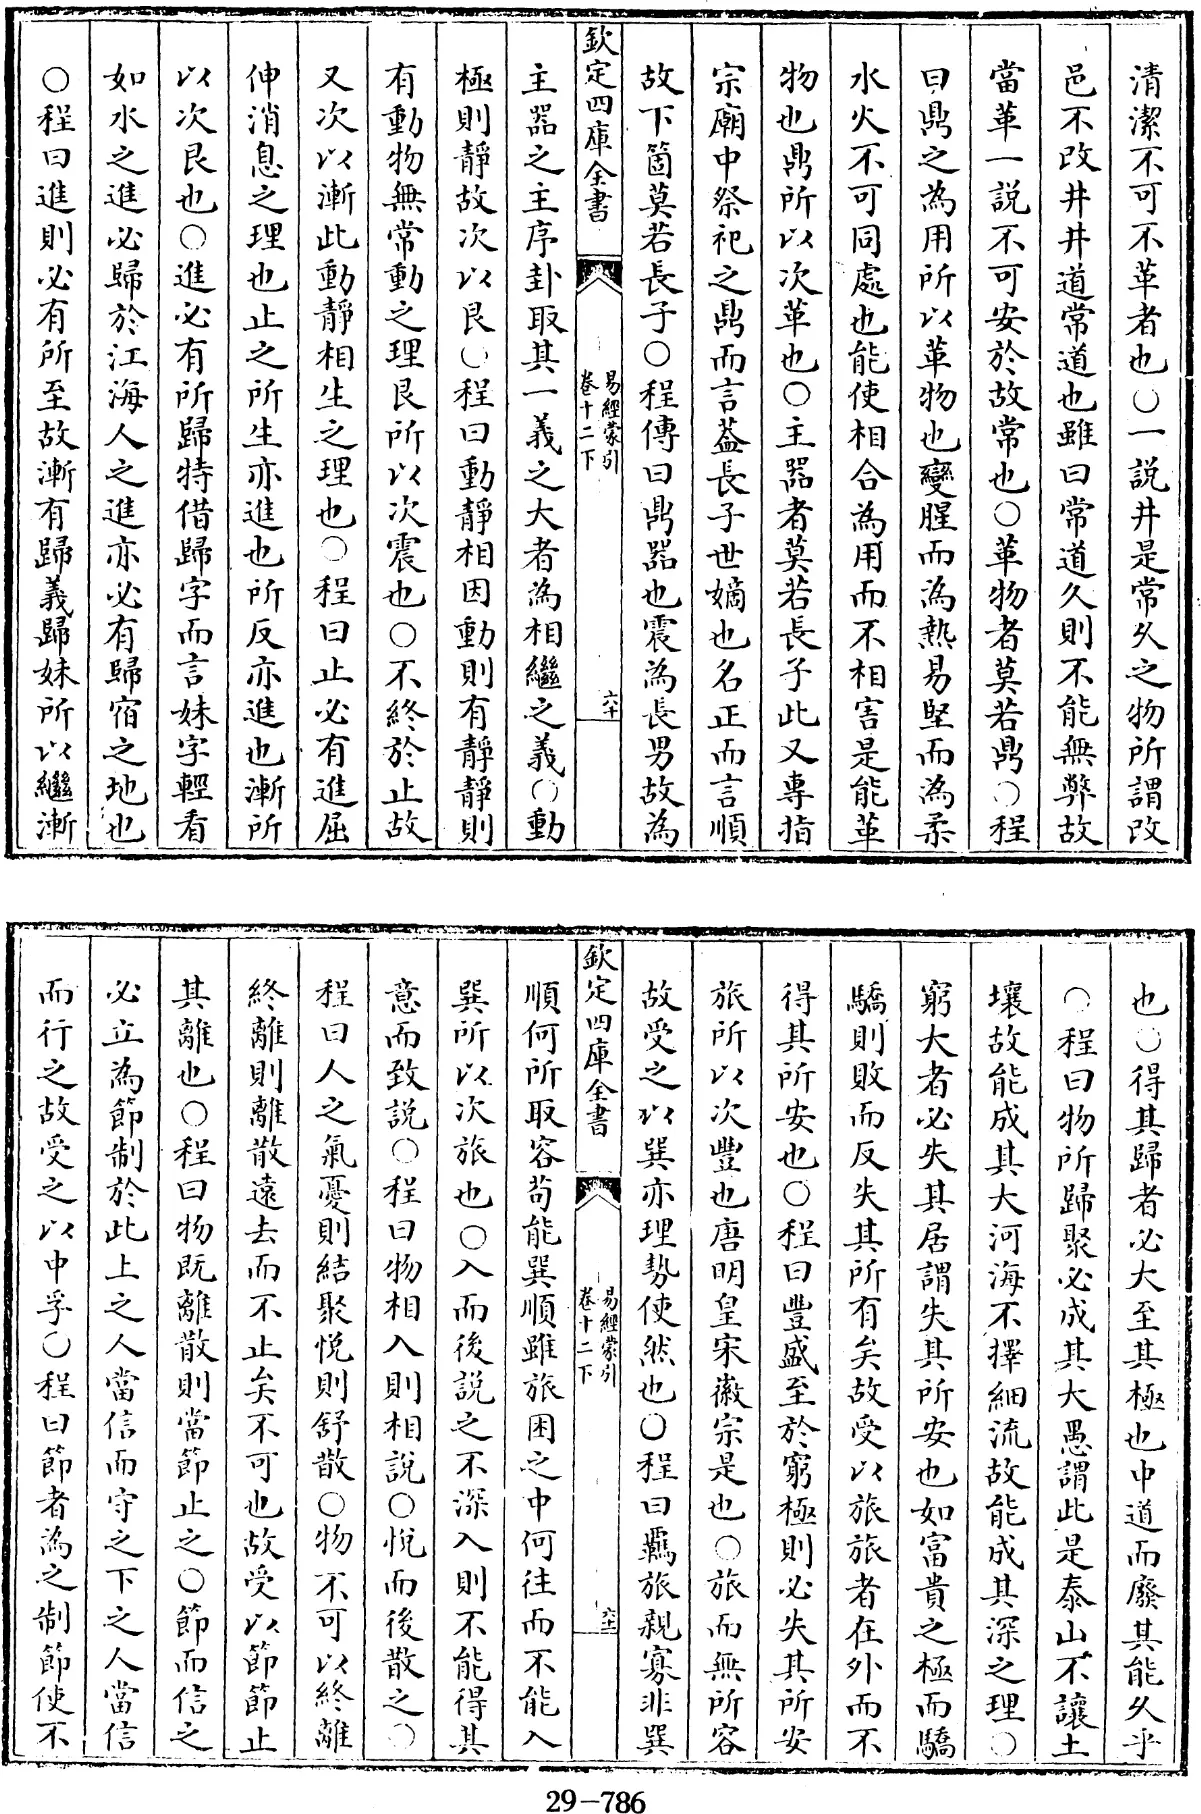 清潔不可不革者也○一說井是常久之物所謂改
邑不改井井道常道也雖曰常道久則不能無弊故
當革一說不可安於故常也○革物者莫若鼎○程
曰鼎之為用所以革物也變腥而為熟易堅而為柔
水火不可同處也能使相合為用而不相害是能革
物也鼎所以次革也○主器者莫若長子此又專指
宗廟中祭祀之鼎而言蓋長子世嫡也名正而言順
故下箇莫若長子○程傳曰鼎器也震為長男故為
欽定四庫全書
易經蒙引
卷十二下
六十
主器之主序卦取其一義之大者為相繼之義○動
極則靜故次以艮○程曰動靜相因動則有靜靜則
有動物無常動之理艮所以次震也○不終於止故
又次以漸此動靜相生之理也○程曰止必有進屈
伸消息之理也止之所生亦進也所反亦進也漸所
以次艮也○進必有所歸特借歸字而言妹字輕看
如水之進必歸於江海人之進亦必有歸宿之地也
○程曰進則必有所至故漸有歸義歸妹所以繼漸
也○得其歸者必大至其極也中道而廢其能久乎
○程曰物所歸聚必成其大愚謂此是泰山不讓土
壤故能成其大河海不擇細流故能成其深之理○
窮大者必失其居謂失其所安也如富貴之極而驕
驕則敗而反失其所有矣故受以旅旅者在外而不
得其所安也○程曰豐盛至於窮極則必失其所安
旅所以次豐也唐明皇宋徽宗是也○旅而無所容
故受之以巽亦理勢使然也○程曰羈旅親寡非巽
欽定四庫全書
易經蒙引
卷十二下
六十一
順何所取容苟能巽順雖旅困之中何往而不能入
巽所以次旅也○入而後說之不深入則不能得其
意而致說○程曰物相入則相說○悅而後散之○
程曰人之氣憂則結聚悅則舒散○物不可以終離
終離則離散遠去而不止矣不可也故受以節節止
其離也○程曰物既離散則當節止之○節而信之
必立為節制於此上之人當信而守之下之人當信
而行之故受之以中孚○程曰節者為之制節使不
29-786